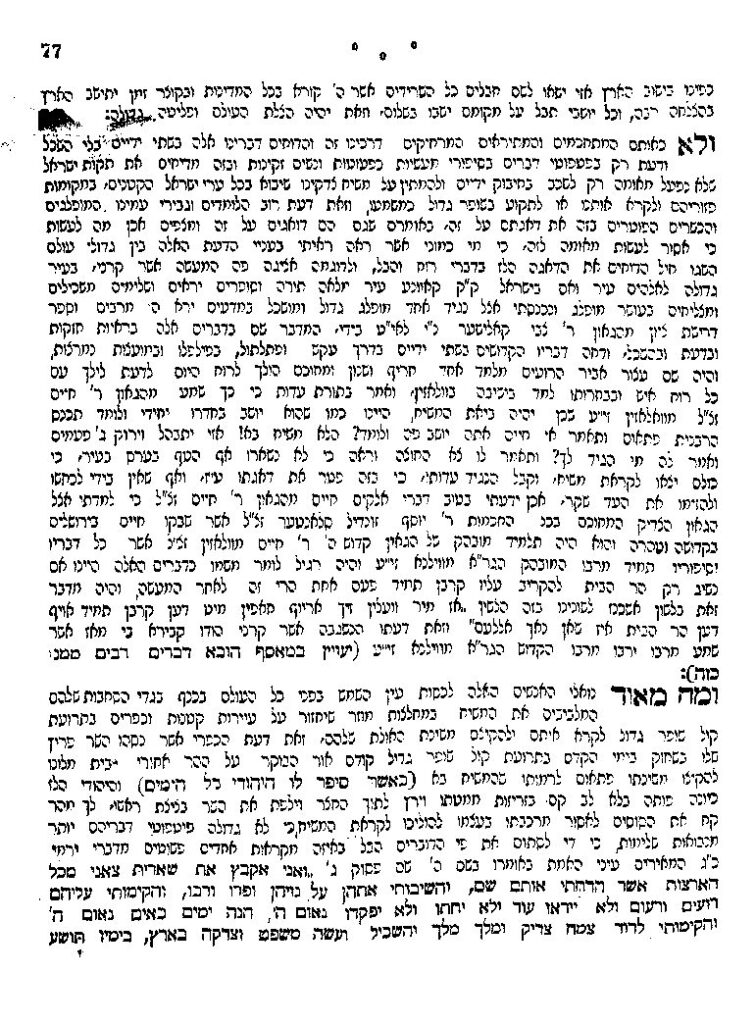 77
כפינו בישוב הארץ אזי ישאו לשם מבלים כל השרידים אשר ה' קורא בכל המדינות ובקוצר זמן יתישב הארץ
בהצלחה רבה, וכל יושבי תבל על מקומם ישבו בשלום, וזאת יהיה הצלת העולם ופליטה גדולה:
ולא כאותם המתחכמים והמתיראים המרחיקים דרכינו זה והדוחים דברינו אלה בשתי ידיים בלי השכל
ודעת רק בפטפוטי דברים בסיפורי מעשיות כפעוטות ונשים זקינות ובזה מדיחים את תקות ישראל
שלא נפעל מאומה רק לשכב בחיבוק ידיים ולהמתין על משיח לדקינו שיבוא בכל ערי ישראל הקטנים, במקומות
פזוריהם ולקרא אותנו או לתקוע בשופר גדול כמשמעו, וזאת דעת רוב הלומדים וגבירי עמינו המופלגים
והכשרים הפוטרים בזה את דאגתם על זה, באומרם שגם הם דואגים על זה ומצפים אכן מה לעשות
כי אסור לעשות מאומה לזה, כי מי כמוני אשר ראה ראיתי בעניי הדעת האלה בין גדולי עולם
השגו חיל הדוחים את הדאגה הלז בדברי רוח והבל, ולדוגמה אציגה פה המעשה אשר קרני, בעיר
גדולה לאלהים עיר ואם בישראל ק"ק קאוונע עיר מלאה תורה וסופרים יראים ושלימים משכילים
ומצליחים בעושר מופלג ונכנסתי אצל נגיד אחד מופלג גדול ומושכל במדעים ירא ה' מרבים וספר
דרישת ציון מהגאון ר' צבי קאלישער נ"י לאי"ט בידי, המדבר שם בדברים אלה בראיות חזקות
ובדעת ובהשכל, ודחה דבריו הקדושים בשתי ידיים בדרך עקש ופתלתול, בפילפולו ובמועצות נמרצות,
והיה שם עצור אביר הרועים מלמד אחד חריף ושנון ומחוכם הולך לרוח היום לדעת לילך עם
כל רוח איש ובבחרותו למד בישיבה בוולאזין, ואמר בתורת עדות כי כך שמע מהגאון ר' חיים
זצ"ל מוואלאזין זי"ע שכן יהיה ביאת המשיח, היינו כמו שהוא יושב בחדרו יחידי ולומד תכנס
הרבנית פתאום ותאמר אי חיים אתה יושב פה ולומד? הלא משיח בא! אזי יתבהל וירוק ג' פעמים
ואמר לה מי הגיד לך? ותאמר לו צא החוצה וראה כי לא נשארו אף העף בערסם בעיר, כי
כולם יצאו לקראת משיח, וקבל הנגיד עדותו, כי בזה פטר את דאגתו עיז, ואף שאין בידי לכחשו
ולהזימו את העד שקר, אכן ידעתי בטוב דברי אלקים חיים מהגאון ר' חיים זצ"ל כי למדתי אצל
הגאון הצדיק המחוכם בכל החכמות ר' יוסף זונדיל סלאנטער זצ"ל אשר שבקו חיים בירושלים
בקדושה וטהרה והוא היה תלמיד מובהק של הגאון קדוש ה' ר' חיים מוולאזין זצ"ל אשר כל דבריו
וסיפוריו תמיד מרבו המובהק הגר"א מווילנא זי"ע והיה רגיל לומר משמו כדברים האלה היינו אם
נשיג רק הר הבית להקריב עליו קרבן תמיד פעם אחת הרי זה לאחר המעשה, והיה מדבר
זאת בלשון אשכנז לשונינו בזה הלשון „אז מיר וועלין זיך אריוף חאפין מיט דען קרבן תמיד אויף
דען הר הבית איז שאן נאך אללעס" וזאת דעתו הנשגבה אשר קרני הודו קבירא כי מאז אשר
שמע מרבו ירבו מרבו הקדוש הגר"א מווילנא זי"ע (יעויין במאסף הובא דברים רבים ממנו
כזה):
ומה מאוד נואלו האנשים האלה לכסות עין השמש בפני כל העולם בכנף בגדי הסחבות שלהם
המלבישים את המשיח במחלצות מוזר שיחזור על עיירות קטנות וכפרים בתרועת
קול שופר גדול לקרא איתם ולהקיצם משינת האולת שלהם, זאת דעת הכפרי אשר נסהו השר פריץ
שלו בשחוק בימי הקדם בתרועת קול שופר גדול קודם אור הבוקר על ההר אחורי בית מלונו
להקיצו משינתו פתאום לרמותו שהמשיח בא (כאשר סיפר לו היהודי כל הימים) והיהודי הלז
כיונה פותה בלא לב קם בזריזות ממטתו וירץ לתוך החצר וילפת את השר בגילת ראשו, לך מהר
קח את הסוסים לאסור מרכבתי בעצמו להוליכו לקראת המשיח, כי לא גדולה פיטפוטי דבריהם יותר
מנבואות שלימות, כי די לסתום את פי הדוברים הבל באיזה מקראות אחדים פשוטים מדברי ירמי'
כ"ג המאירים עיני האמת באומרו בשם ה' שם פסוק ג' „ואני אקבץ את שארית צאני מכל
הארצות אשר הדחתי אותם שם, והשיבותי אתהן על נויהן ופרו ורבו, והקימותי עליהם
רועים ורעום ולא ייראו עוד ולא יחתו ולא יפקדו נאום ה', הנה ימים באים נאום ה'
והקימותי לדוד צמח צדיק ומלך מלך והשכיל ועשה משפט וצדקה בארץ, בימיו תושע